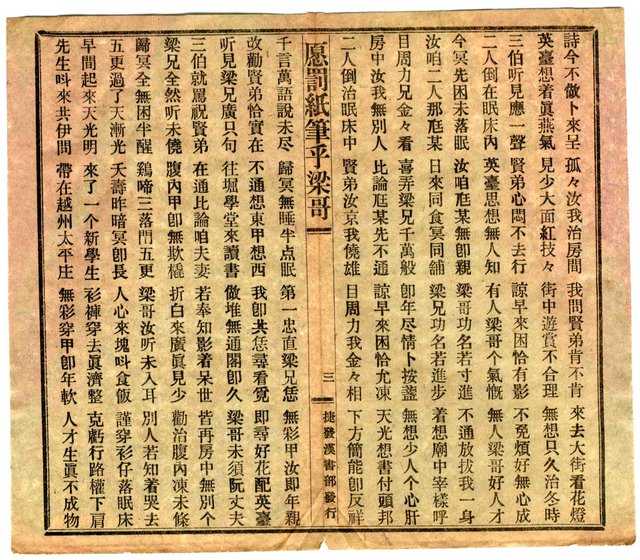 詩今不做卜來呈 孤々汝我治房間 我問賢弟肯不肯 來去大街看花燈
英臺想着眞燕氣 見少大面紅技々 街中遊賞不合理 無想只久治冬時
三伯听見應一聲 賢弟心悶不去行 諒早來困恰有影 不免煩好無心成
二人倒在眠床內 英臺思想無人知 有人梁哥个氣慨 無人梁哥好人才
今冥先困未落眠 汝咱尫某無卽親 梁哥功名若寸進 不通放拔我一身
汝咱二人那尫某 日來同食冥同舖 梁兄功名若進步 着想廟中宰樣呼
目周力兄金々看 喜弄梁兄千萬般 卽年尽情卜按盞 無想少人个心肝
房中汝我無別人 比論尫某先不通 諒早來困恰尤凍 天光想書付頭邦
二人倒治眠床中 賢弟汝京我僥雄 目周力我金々相 下方簡能卽反祥
愿罰紙筆乎梁哥 三 捷發漢書部發行
千言萬語說未尽 歸冥無睡半点眠 第一忠直梁兄恁 無彩甲汝卽年親
改勸賢弟恰實在 不通想東甲想西 我卽共恁尋看覓 卽尋好花配英臺
听見梁兄廣只句 往堀學堂來讀書 做堆無通閣卽久 梁哥未須阮丈夫
三伯就罵祝賢弟 在通比論咱夫妻 若奉知影着呆世 皆再房中無別个
梁兄全然听未僥 腹內甲卽無欺橇 折白來廣眞見少 勸治腹內凍未條
歸冥全無困半醒 鷄啼三落門五更 梁哥汝听未入耳 別人若知着哭去
五更過了天漸光 夭壽昨暗冥卽長 人心來塊呌食飯 謹穿衫仔落眠床
早間起來天光明 來了一个新學生 衫褲穿去眞濟整 克虧行路權下肩
先生呌來共伊間 帶在越州太平庄 無彩穿甲卽年軟 人才生眞不成物